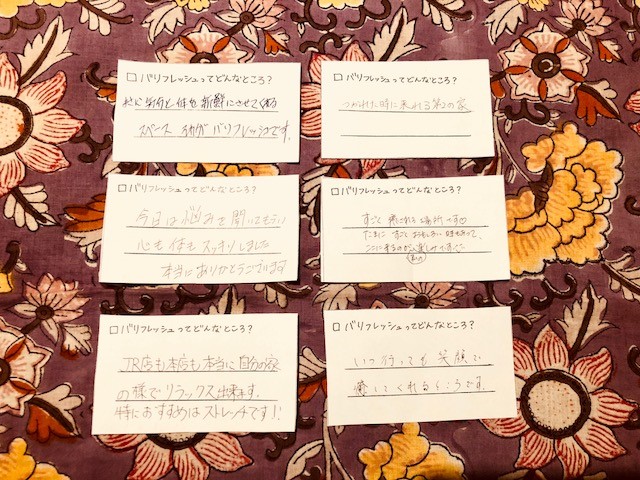 □バリフレッシュってどんなところ?
心と体を新鮮にさせてくれる
スペース それがバリフレッシュです。
□バリフレッシュってどんなところ?
つかれた時に来れる第2の家
□バリフレッシュってどんなところ?
今日は悩みを聞いてもらい
心も体もスッキリしました
本当にありがとうございます
□バリフレッシュってどんなところ?
すごく癒される場所です♡
たまに すごくおもしろい時もあって、
ここに来るのが楽しみです
□バリフレッシュってどんなところ?
JR店も本店も本当に自分の家
の様でリラックス出来ます。
特におすすめはストレッチです!!
□バリフレッシュってどんなところ?
いつ行っても笑顔で
癒してくれるところです。